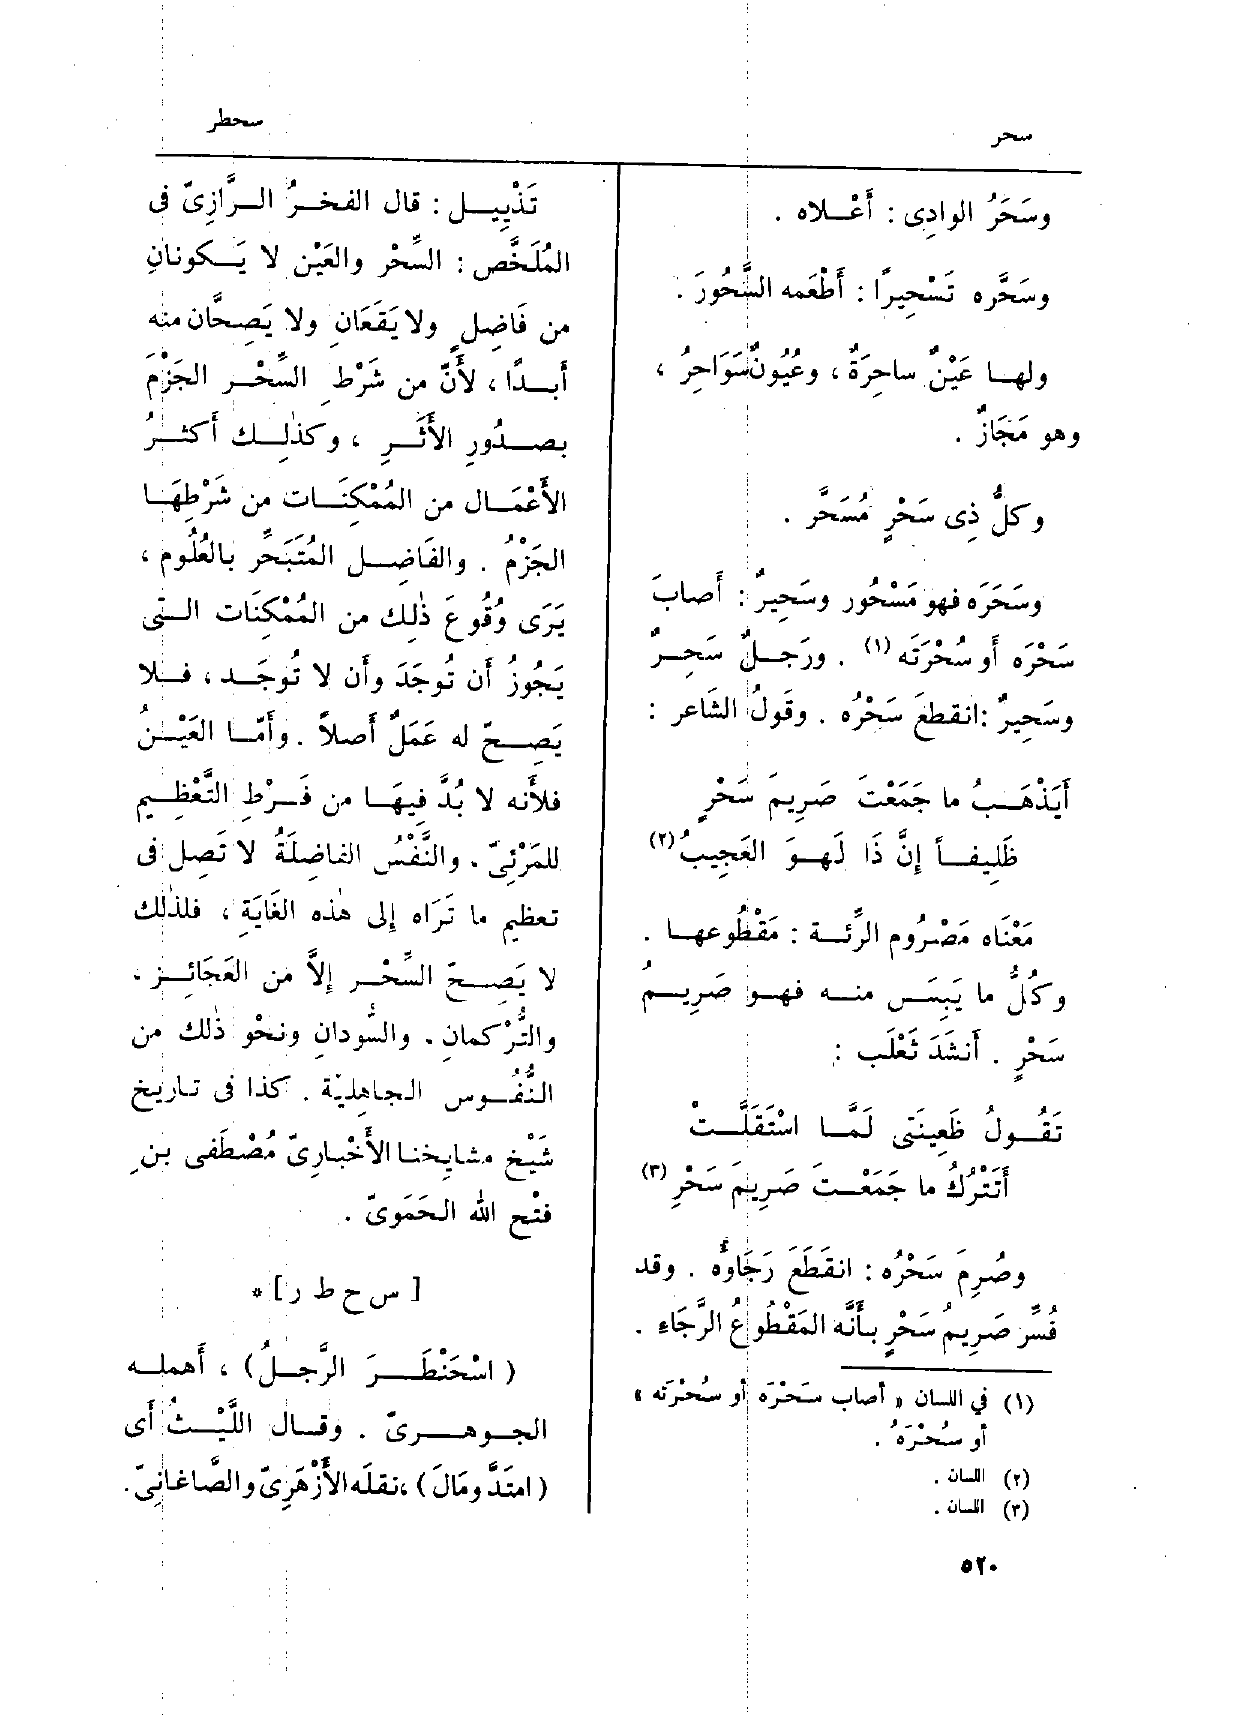 سحر
سحطر
وسَحَرُ الوادِى : أَعْـلاه .
وسَحَّره تَسْحِيرًا : أَطْعَمه السَّحُورَ .
ولهـا عَيْنٌ ساحِرَةٌ ، وعُيُونٌ سَوَاحِرُ ،
وهو مَجَازٌ .
وكلُّ ذِى سَحْرٍ مُسَحَّر .
وسَحَرَه فهو مَسْحُور وسَحِيرٌ : أَصابَ
سَحْرَه أَو سُحْرَتَه (١) . ورَجـلٌ سَحِـرٌ
وسَحِيرٌ : انقطعَ سَحْرُه . وقَولُ الشَّاعر :
أَيَذْهَـبُ ما جَمَعْتَ صَرِيمَ سَحْرٍ
ظَلِيفـاً إِنَّ ذَا لَهـوَ العَجِيبُ (٢)
مَعْنَاه مَصْرُوم الرِّئـة : مَقْطُوعهـا .
وكُلُّ ما يَبِسَ منـه فهـو صَرِيـمُ
سَحْرٍ . أَنشَدَ ثَعْلَب :
تَقُـولُ ظَعِينَتِى لَمَّـا اسْتَقَلَّـتْ
أَتَتْرُكُ ما جَمَعْـتَ صَرِيمَ سَحْرِ (٣)
وصُرِمَ سَحْرُه : انقَطَعَ رَجَاؤُه . وقد
فُسِّر صَرِيمُ سَحْرٍ بأَنَّه المَقْطُوعُ الرَّجَاءِ .
(١) في اللسان « أصاب سَحْرَه أو سُحْرَته »
أو سُحْرَهُ .
(٢) اللسان .
(٣) اللسان .
٥٢٠
تَذْيِيـل : قال الفخـرُ الـرَّازِىّ فى
المُلَخَّص : السِّحْر والعَيْن لا يَـكونانِ
من فَاضِلٍ ولا يَقَعَانِ ولا يَصِحَّان منه
أَبـدًا ، لأَنَّ من شَرْطِ السِّحْـرِ الجَزْمَ
بصـدُورِ الأَثَـرِ ، وكذٰلِـك أَكثـرُ
الأَعْمَـال من المُمْكِنَـات من شَرْطِهَـا
الجَزْمُ . والفَاضِـل المُتَبَحِّر بالعُلُوم ،
يَرَى وُقُوعَ ذٰلِك من المُمْكِنَات الـتى
يَجُوزُ أَن تُوجَدَ وأَن لا تُوجَـد ، فـلا
يَصِـحّ له عَمَلٌ أَصلاً . وأَمّـا العَيْـنُ
فلأَنه لا بُدَّ فِيهَـا من فَـرْطِ التَّعْظِـيم
للمَرْئِىّ . والنَّفْسُ الفاضِلَةُ لا تَصِل فى
تعظيم ما تَرَاه إِلى هٰذه الغَايَةِ ، فلذٰلك
لا يَصِـحّ السِّحْـر إِلاَّ من العَجَائـز .
والتُّرْكمانِ . والسُّودانِ ونحْو ذٰلك من
النُّفُـوس الجاهِليّة . كذا فى تـاريخ
شَيْخ مشايخنا الأَخْبارِىّ مُصْطَفى بن
فتْح الله الحَمَوِىّ .
[ س ح ط ر ] *
( اسْحَنْطَـرَ الرَّجـلُ ) ، أَهملـه
الجـوهـرىّ . وقـال اللَّيْـثُ أَى
( امتَدَّ ومَالَ ) ، نقلَه الأَزْهَرِىّ والصَّاغانِىّ .